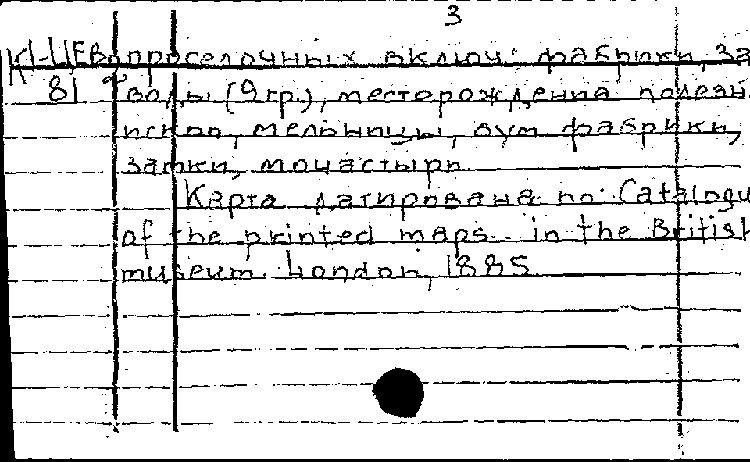 3
К1-ЦЕв проселочных включ. фабрики, за
81 воды (2гр.), месторождения полезн.
ископ, мельницы, бум фабрики,
замки, монастыри
Карта датирована по: Catalogu
of the printed maps in the British
museum. London, 1885